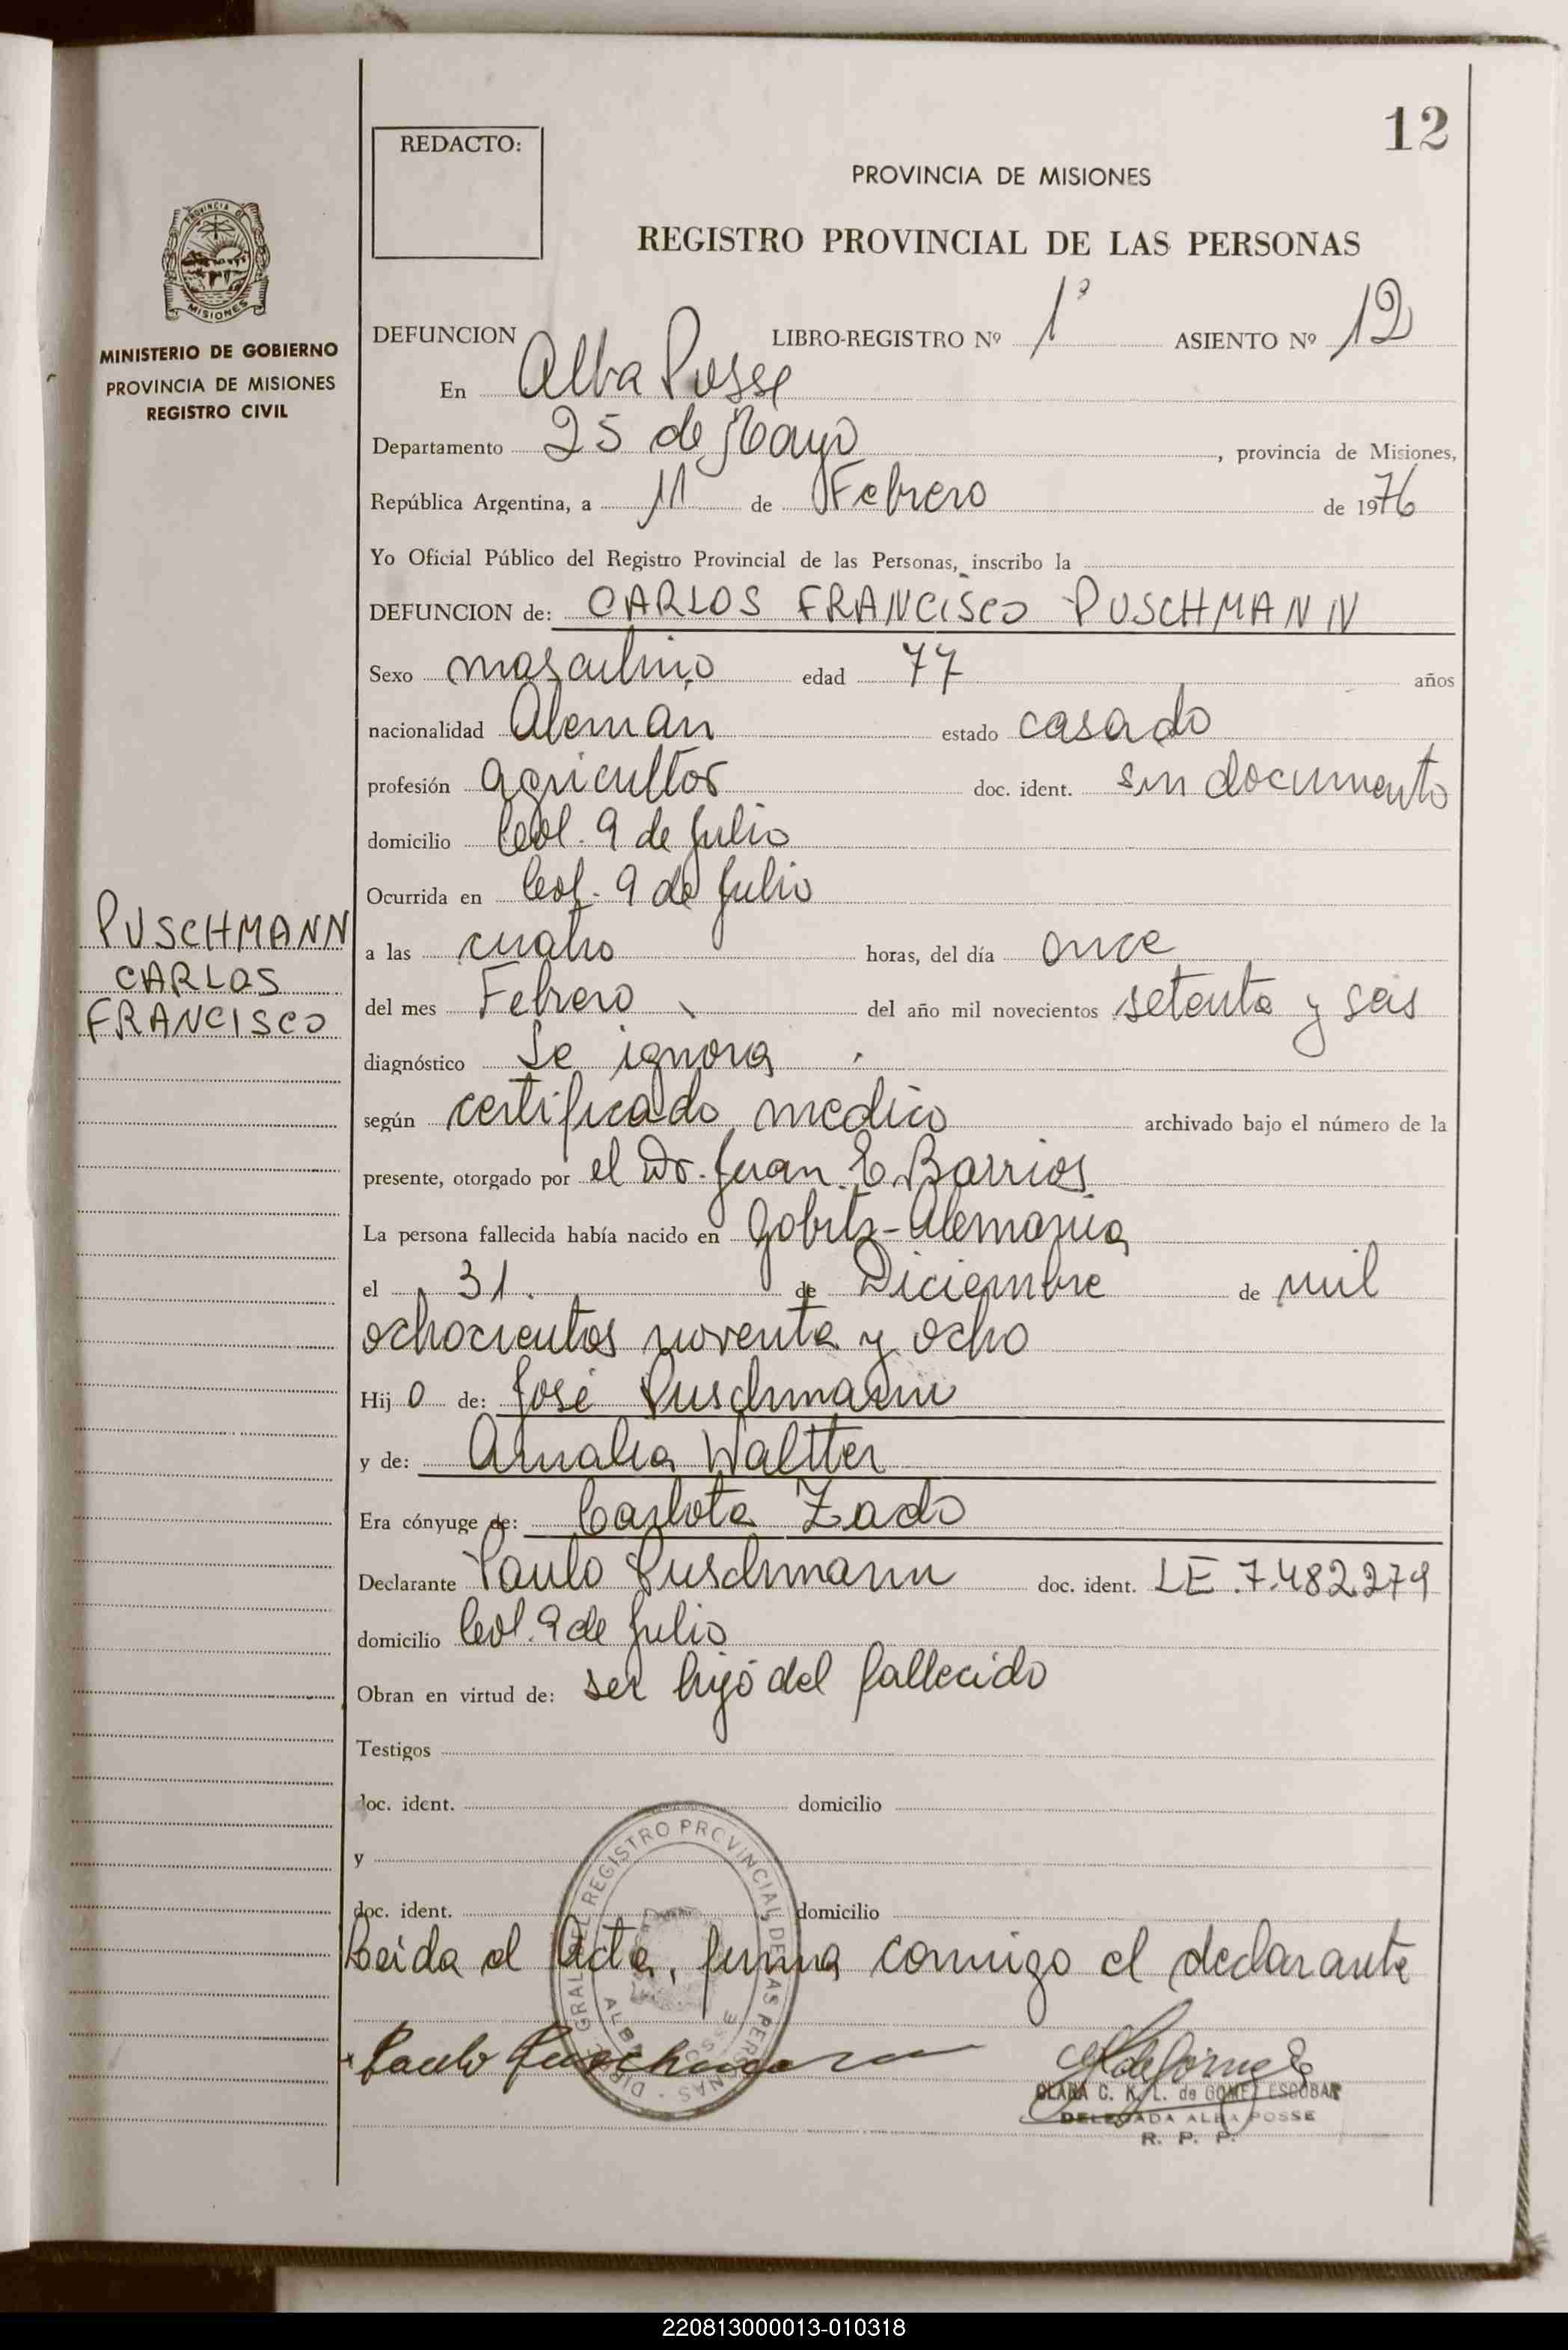 12
REDACTO:
PROVINCIA DE MISIONES
REGISTRO PROVINCIAL DE LAS PERSONAS
PROVINCIA DE
MISIONES
MINISTERIO DE GOBIERNO
PROVINCIA DE MISIONES
REGISTRO CIVIL
DEFUNCION LIBRO-REGISTRO Nº 1º ASIENTO Nº 12
En Alba Posse
Departamento 25 de Mayo, provincia de Misiones,
República Argentina, a 11 de Febrero de 1976
Yo Oficial Público del Registro Provincial de las Personas, inscribo la
DEFUNCION de: CARLOS FRANCISCO PUSCHMANN
Sexo masculino edad 77 años
nacionalidad Aleman estado casado
profesión agricultor doc. ident. sin documento
domicilio Col. 9 de Julio
Ocurrida en Col. 9 de Julio
PUSCHMANN
CARLOS
FRANCISCO
a las cuatro horas, del día once
del mes Febrero del año mil novecientos setenta y seis
diagnóstico Se ignora
según certificado medico archivado bajo el número de la
presente, otorgado por el Dr. Juan E. Barrios
La persona fallecida había nacido en - Alemania
el 31. de Diciembre de mil
ochocientos noventa y ocho
Hijo de: José Puschmann
y de: Amalia Waltter
Era cónyuge de: Carlota Zado
Declarante Paulo Puschmann doc. ident. LE.7.482.279
domicilio Col. 9 de Julio
Obran en virtud de: ser hijo del fallecido
Testigos
doc. ident. domicilio
y
doc. ident. domicilio
Leida el Acta, firma conmigo el declarante
REGISTRO PROVINCIAL DE LAS PERSONAS
Paulo Puschmann
CLARA C. K. L. de GOMEZ ESCOBAR
DELEGADA ALBA POSSE
R. P. P.
220813000013-010318